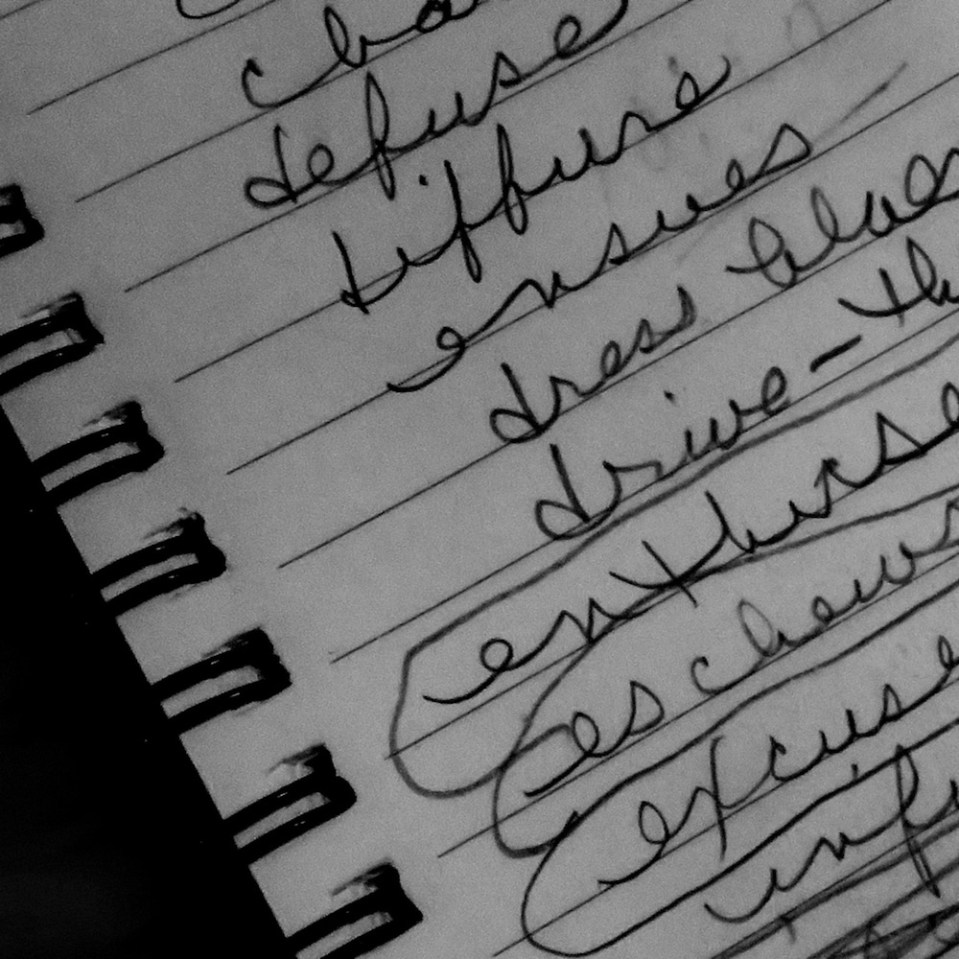 cha
defuse
diffuse
ensues
dress blues
drive-th
enthuse
eschews
excuse
infu